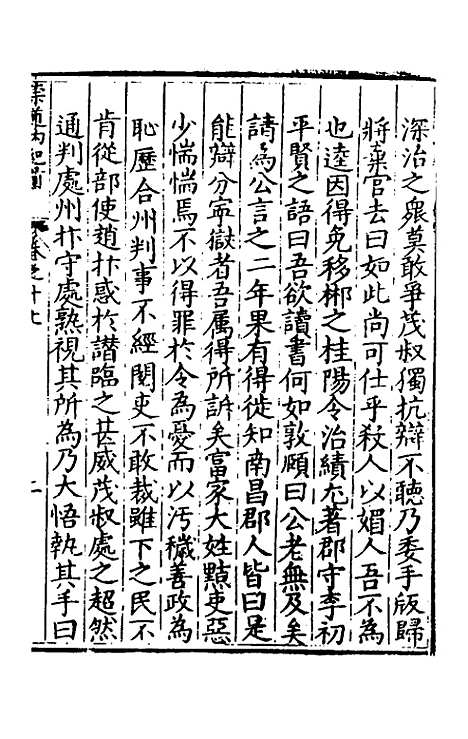 深治之眾莫敢爭茂叔獨抗辯不聽乃委手版歸
將棄官去曰如此尚可仕乎殺人以媚人吾不為
也逵因得免移郴之桂陽令治績尤著郡守李初
平賢之語曰吾欲讀書何如敦頤曰公老無及矣
請為公言之二年果有得徙知南昌郡人皆曰是
能辯分寧獄者吾属得所訴矣富家大姓黠吏惡
少惴惴焉不以得罪於令為憂而以汚穢善政為
恥歷合州判事不經閱吏不敢裁雖下之民不
肯從部使趙抃惑於譖臨之甚威茂叔處之超然
通判處州抃守處熟視其所為乃大悟執其手曰
卷之十七
二